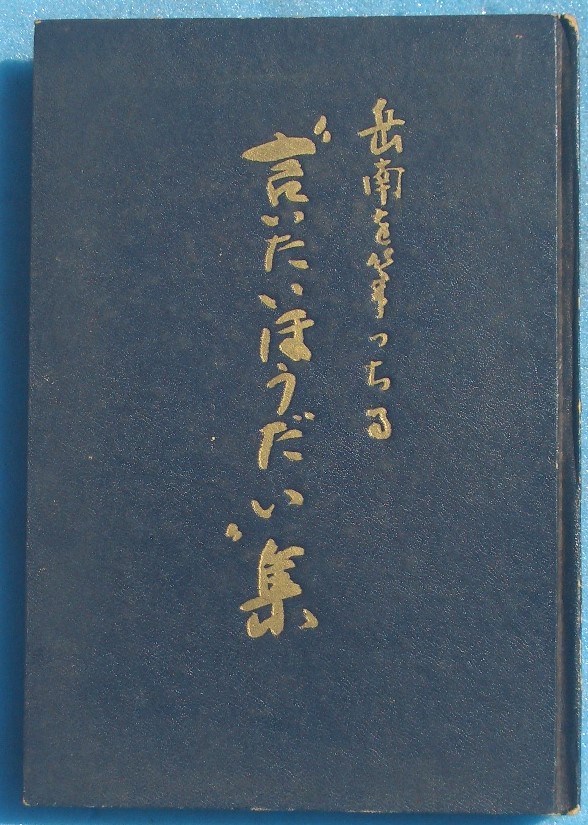 岳南を筆っちる
“言いたいほうだい”集